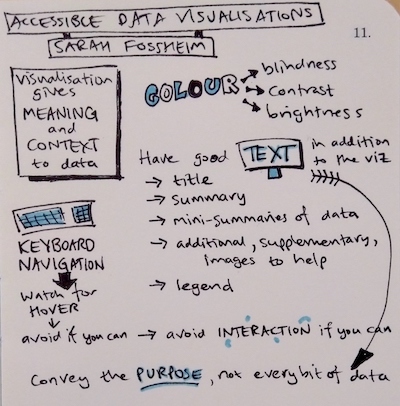 ACCESSIBLE DATA VISUALISATIONS
SARAH FOSSHEIM
11.
Visualisation
gives
MEANING
and
CONTEXT
to data
COLOUR
→ blindness
→ contrast
→ brightness
Have good TEXT in addition
to the viz
→ title
→ summary
→ mini-summaries of data
→ additional, supplementary,
images to help
→ legend
KEYBOARD
NAVIGATION
Watch for
HOVER
avoid if you can → avoid INTERACTION if you can
Convey the PURPOSE, not every bit of data